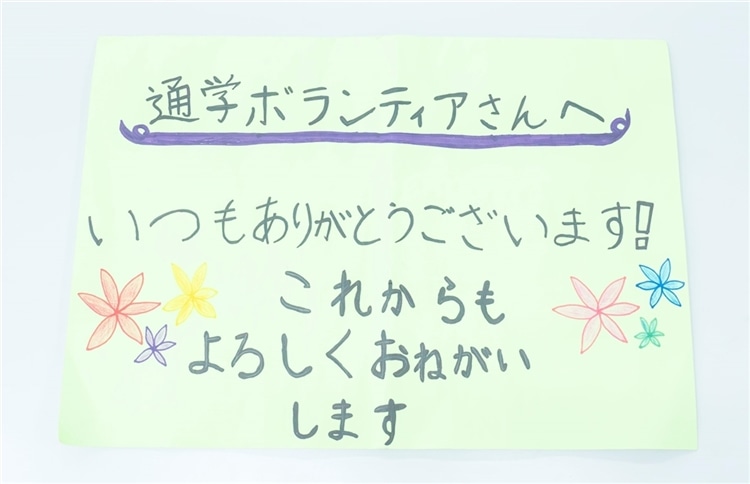 通学ボランティアさんへ
いつもありがとうございます!
これからも
よろしくおねがい
します